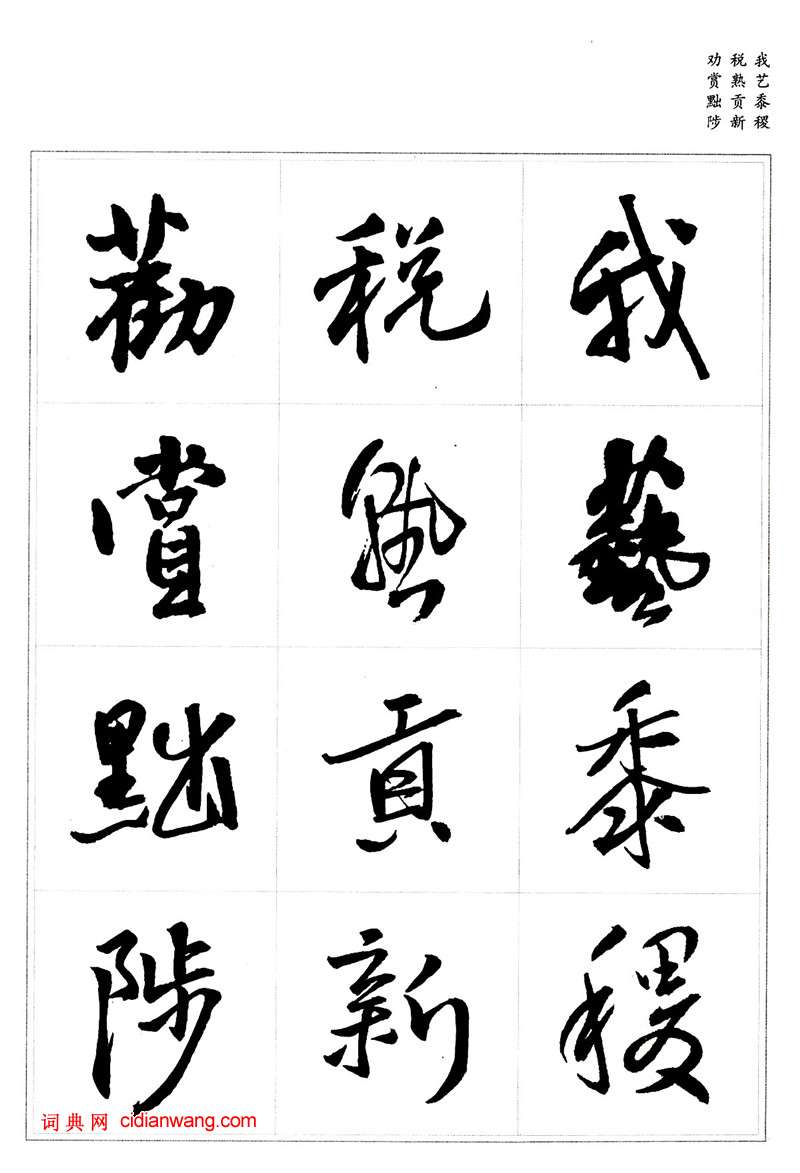 我艺黍稷
税熟贡新
劝赏黜陟
我藝黍稷
税熟貢新
勸賞黜陟
词典网 cidianwang.com